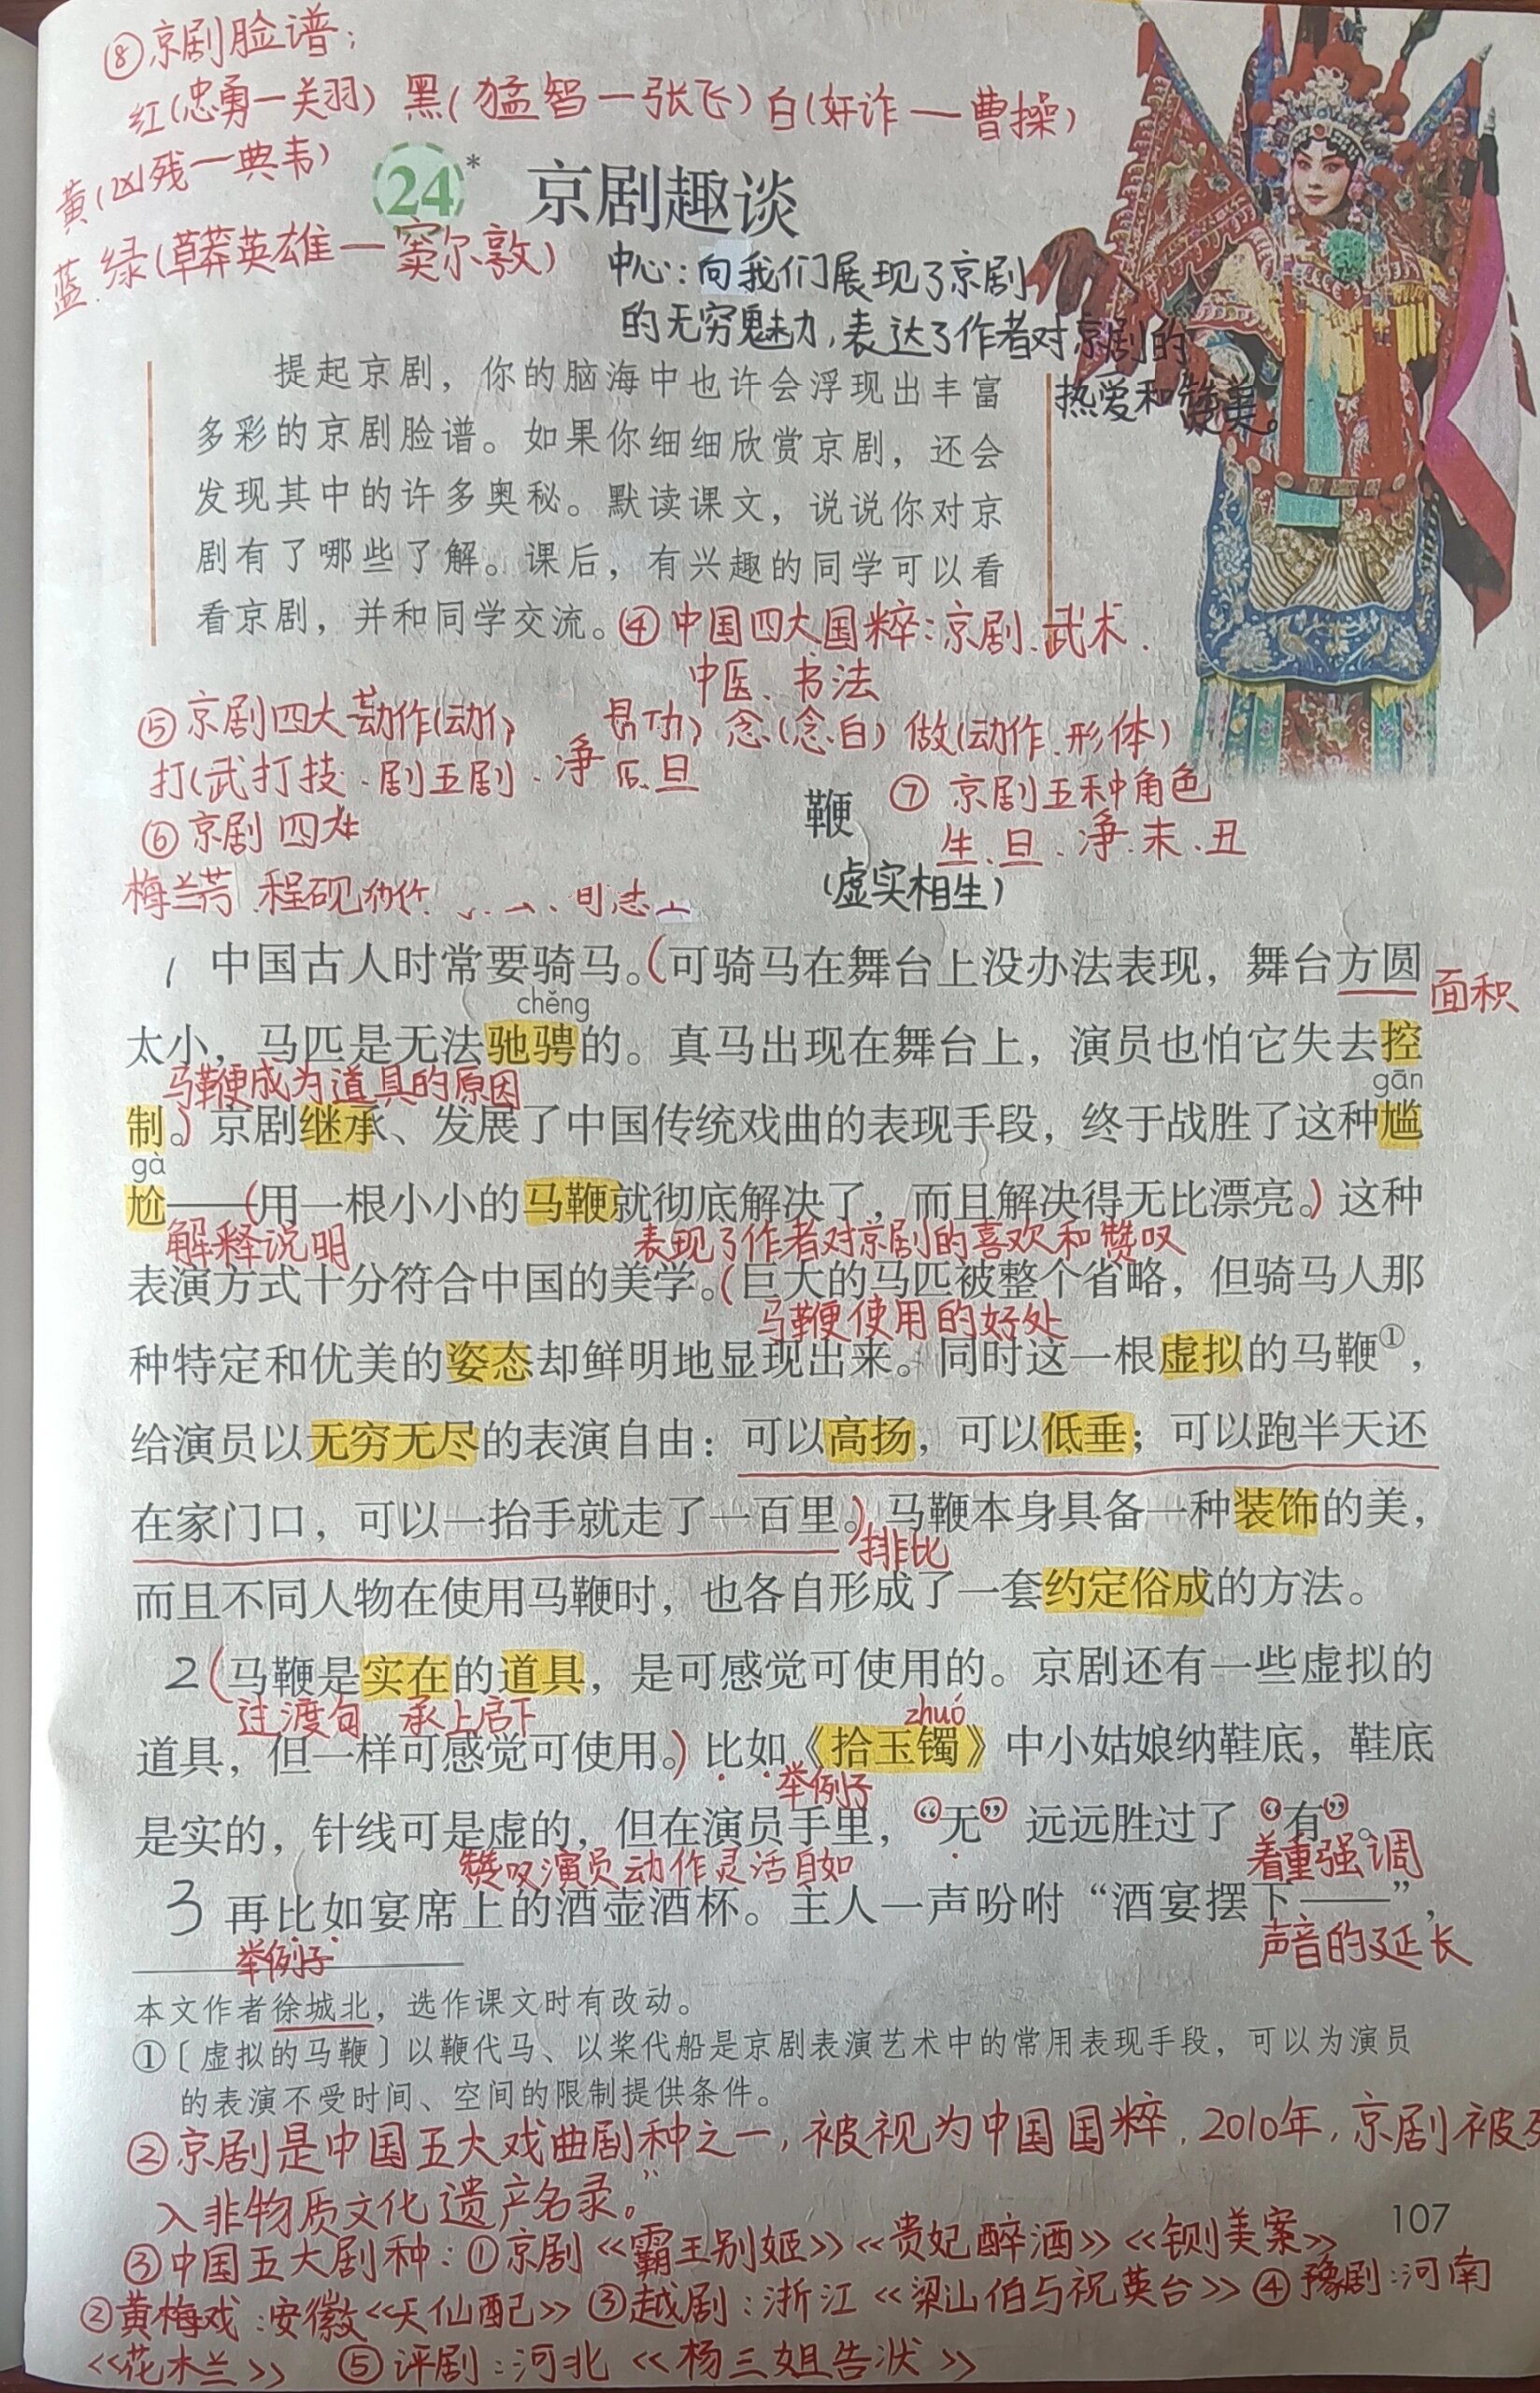 ⑧京剧脸谱:
红(忠勇—关羽) 黑(猛智—张飞) 白(奸诈—曹操)
黄(凶残—典韦)
24* 京剧趣谈
蓝.绿(草莽英雄—窦尔敦)
中心:向我们展现了京剧
的无穷魅力,表达了作者对京剧的
热爱和赞美。
提起京剧，你的脑海中也许会浮现出丰富
多彩的京剧脸谱。如果你细细欣赏京剧，还会
发现其中的许多奥秘。默读课文，说说你对京
剧有了哪些了解。课后，有兴趣的同学可以看
看京剧，并和同学交流。
④中国四大国粹:京剧.武术.
中医、书法
⑤京剧四大 念(念白) 做(动作.形体)
打(武打技
⑥京剧四大
梅兰芳.程砚
鞭
(虚实相生)
⑦ 京剧五种角色
生、旦、净.末、丑
1 中国古人时常要骑马。(可骑马在舞台上没办法表现，舞台方圆
面积
chěng
太小，马匹是无法驰骋的。真马出现在舞台上，演员也怕它失去控
马鞭成为道具的原因
gān
制。)京剧继承、发展了中国传统戏曲的表现手段，终于战胜了这种尴
gà
尬——(用一根小小的马鞭就彻底解决了，而且解决得无比漂亮。)这种
解释说明 表现了作者对京剧的喜欢和赞叹
表演方式十分符合中国的美学。(巨大的马匹被整个省略，但骑马人那
马鞭使用的好处
种特定和优美的姿态却鲜明地显现出来。同时这一根虚拟的马鞭①，
给演员以无穷无尽的表演自由：可以高扬，可以低垂；可以跑半天还
在家门口，可以一抬手就走了一百里。)马鞭本身具备一种装饰的美，
排比
而且不同人物在使用马鞭时，也各自形成了一套约定俗成的方法。
2(马鞭是实在的道具，是可感觉可使用的。京剧还有一些虚拟的
过渡句 承上启下
zhuó
道具，但一样可感觉可使用。)比如《拾玉镯》中小姑娘纳鞋底，鞋底
举例子
是实的，针线可是虚的，但在演员手里，“无”远远胜过了“有”。
赞叹演员动作灵活自如 着重强调
3 再比如宴席上的酒壶酒杯。主人一声吩咐“酒宴摆下——”，
举例子 声音的延长
本文作者徐城北，选作课文时有改动。
①〔虚拟的马鞭〕以鞭代马、以桨代船是京剧表演艺术中的常用表现手段，可以为演员
的表演不受时间、空间的限制提供条件。
②京剧是中国五大戏曲剧种之一,被视为中国国粹,2010年,京剧被列
入非物质文化遗产名录。”
107
③中国五大剧种:①京剧《霸王别姬》《贵妃醉酒》《铡美案》
②黄梅戏:安徽《天仙配》③越剧:浙江《梁山伯与祝英台》④豫剧:河南
《花木兰》 ⑤评剧:河北《杨三姐告状》